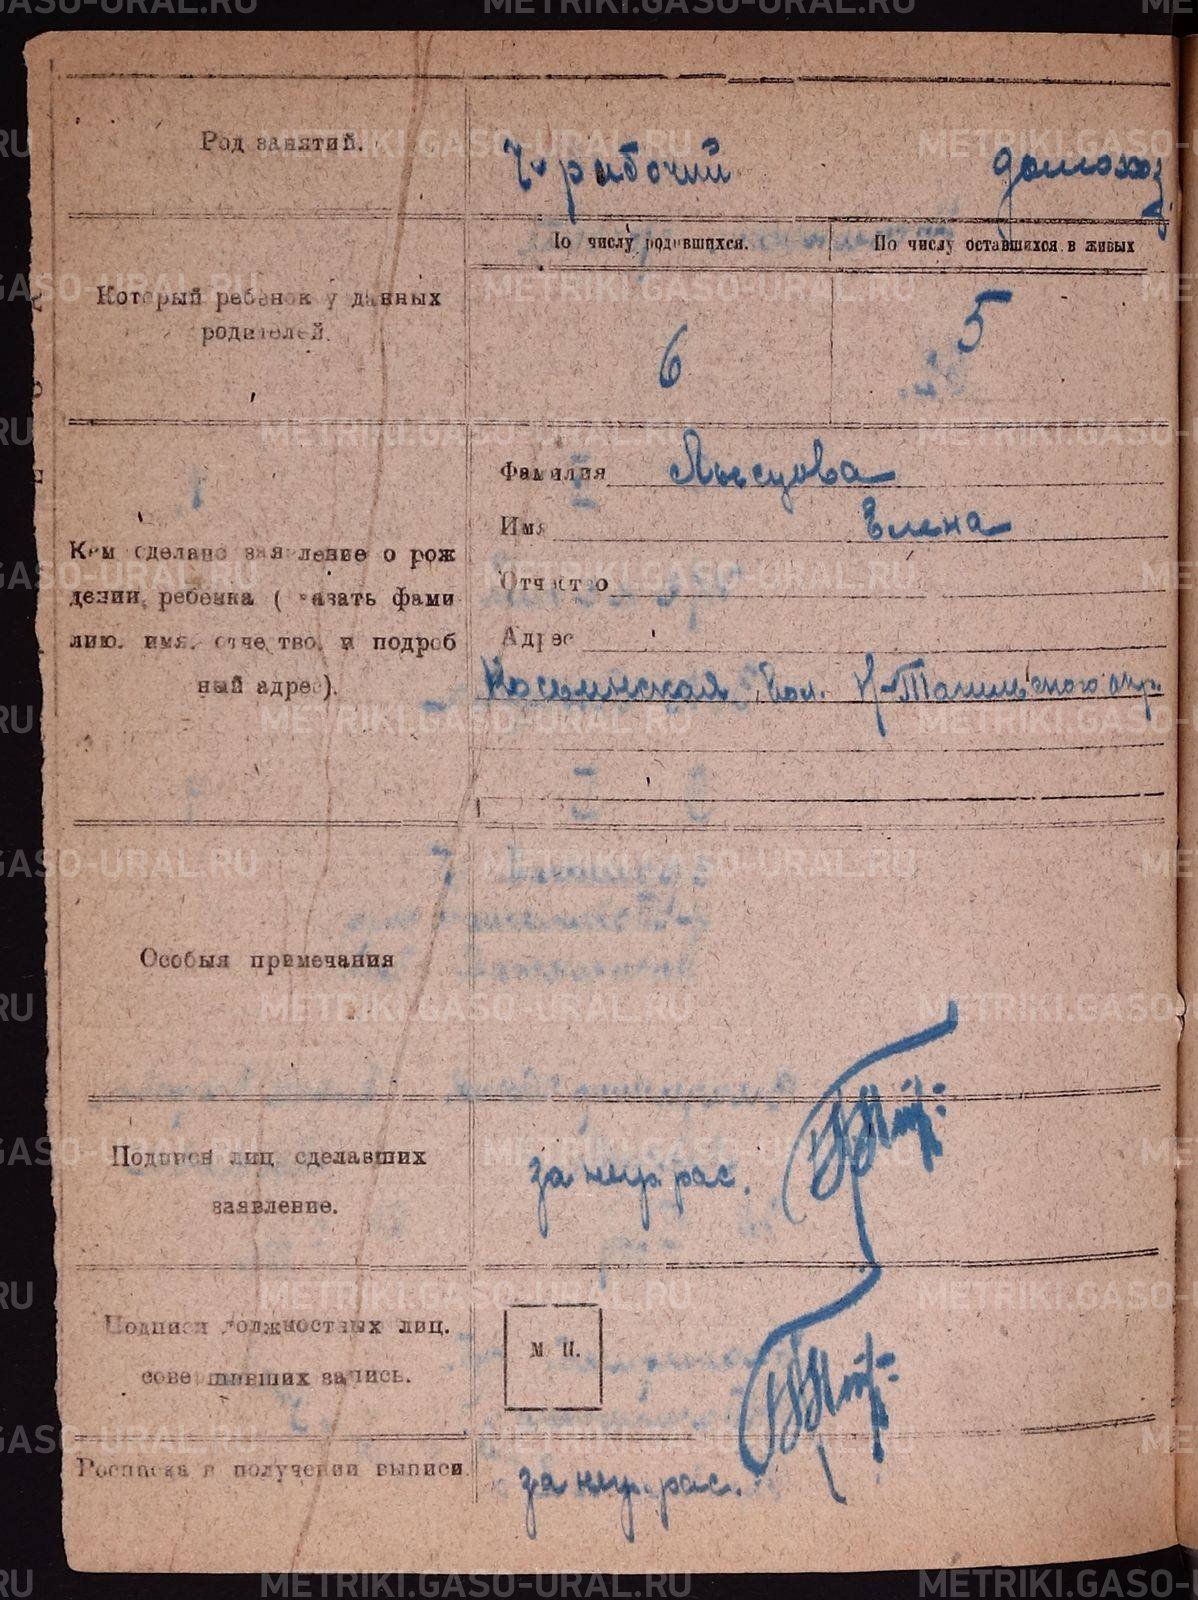 Род занятий.
рабочий домохоз.
По числу родившихся. По числу оставшихся в живых
Который ребенок у данных
родителей.
6 5
Фамилия Лысцова
Имя Елена
Отчество
Адрес
Кем сделано заявление о рож
дении, ребенка ( казать фами
лию. имя. отчество. и подроб
ный адрес).
вол. Н-Тагильского окр.
Особыя примечания
Подписи лиц сделавших
заявление.
за негр. рас.
Подписи должностных лиц.
совершивших запись.
М П.
Росписка в получении выписи
за негр. рас.
METRIKI.GASO-URAL.RU